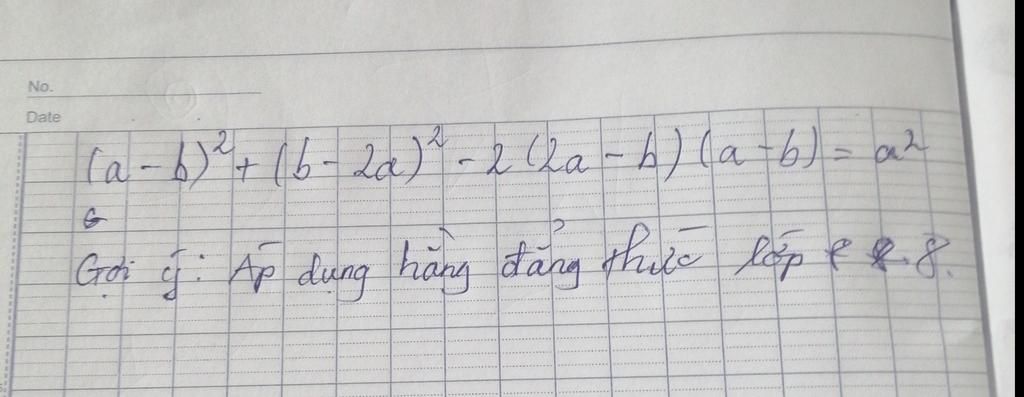 No.
Date
(a - b)² + (b - 2a)² - 2(2a - b)(a - b) = a²
G
Gợi ý: Áp dụng hằng đẳng thức lớp 8.